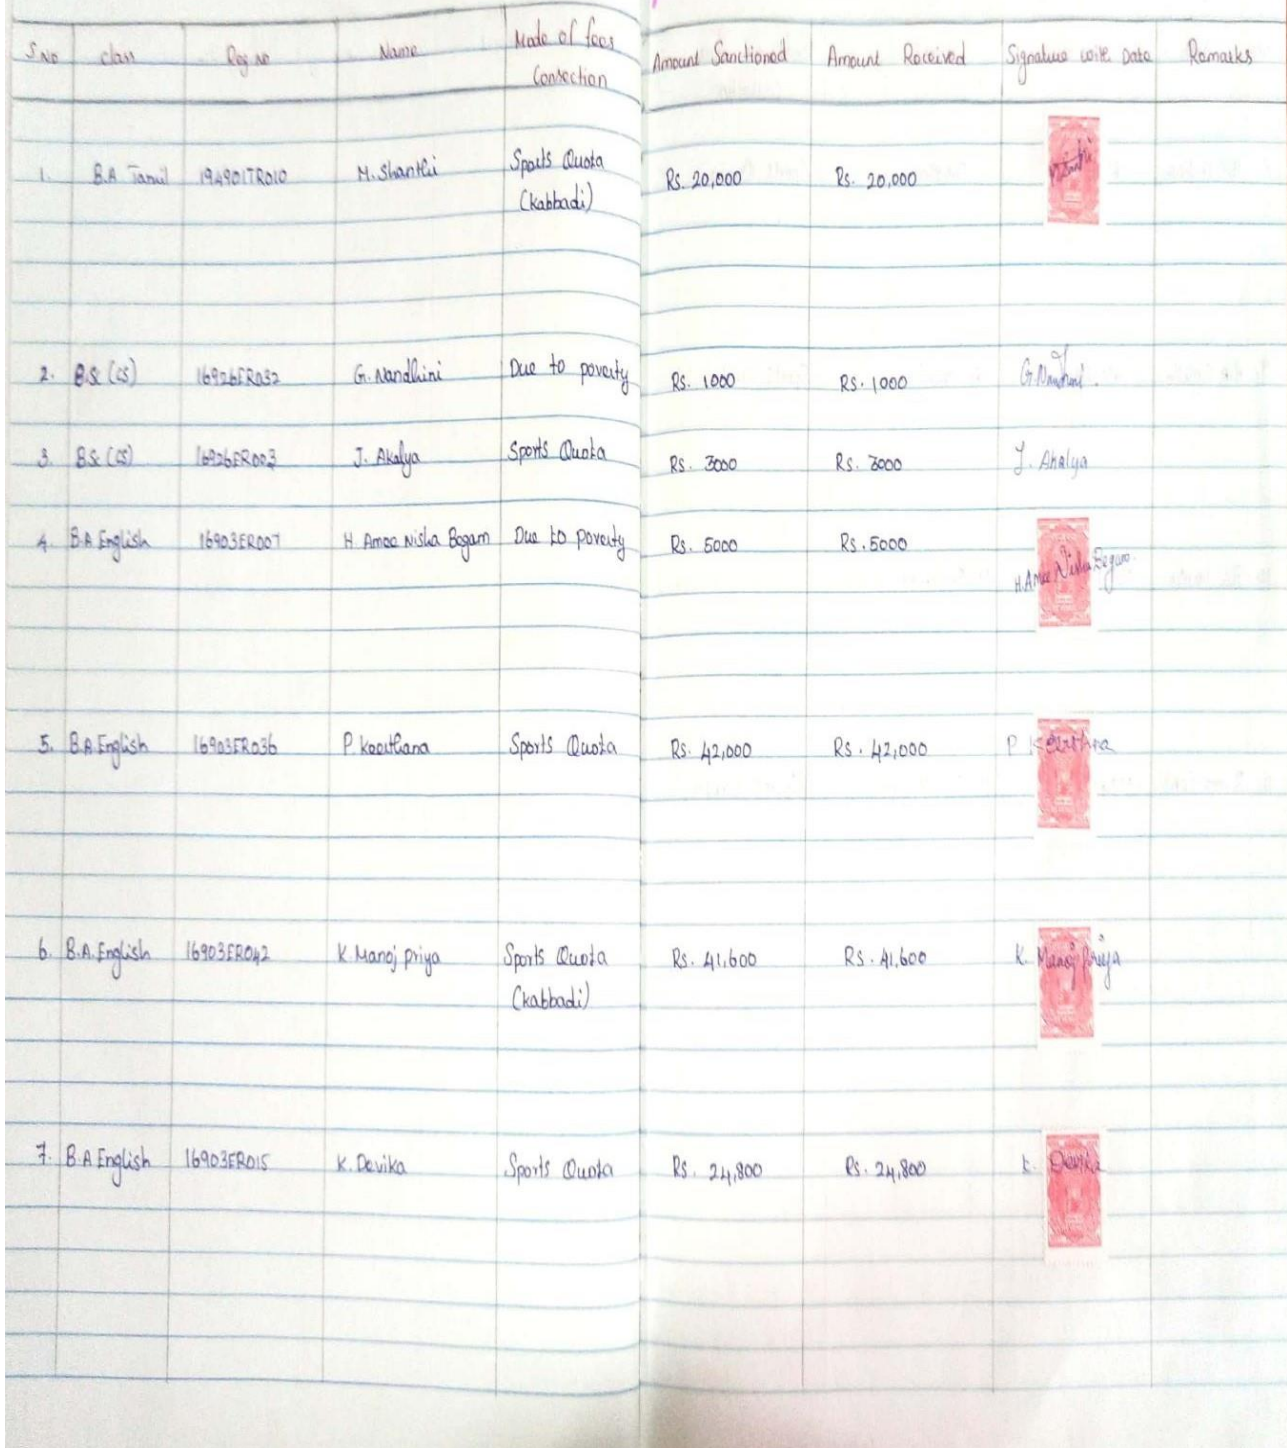 S.No class Reg no Name Mode of fees Amount Sanctioned Amount Received Signature with Date Remarks
Consection
1. B.A Tamil 194901TR010 M. Shanthi Sports Quota Rs. 20,000 Rs. 20,000
(kabbadi)
2. B.Sc (cs) 16926ER032 G. Nandhini Due to poverty Rs. 1000 Rs. 1000 G. Nandhini
3. B.Sc (cs) 16926ER003 J. Akalya Sports Quota Rs. 3000 Rs. 3000 J. Akalya
4. B.A English 16903ER007 H. Amee Nisha Begam Due to poverty Rs. 5000 Rs. 5000
H. Amee Nisha Begam
5. B.A English 16903ER036 P. Keerthana Sports Quota Rs. 42,000 Rs. 42,000 P Keerthna
6. B.A. English 16903ER042 K. Manoj priya Sports Quota Rs. 41,600 Rs. 41,600 K. Manoj Priya
(kabbadi)
7. B.A English 16903ER015 K. Devika Sports Quota Rs. 24,800 Rs. 24,800 K. Devika